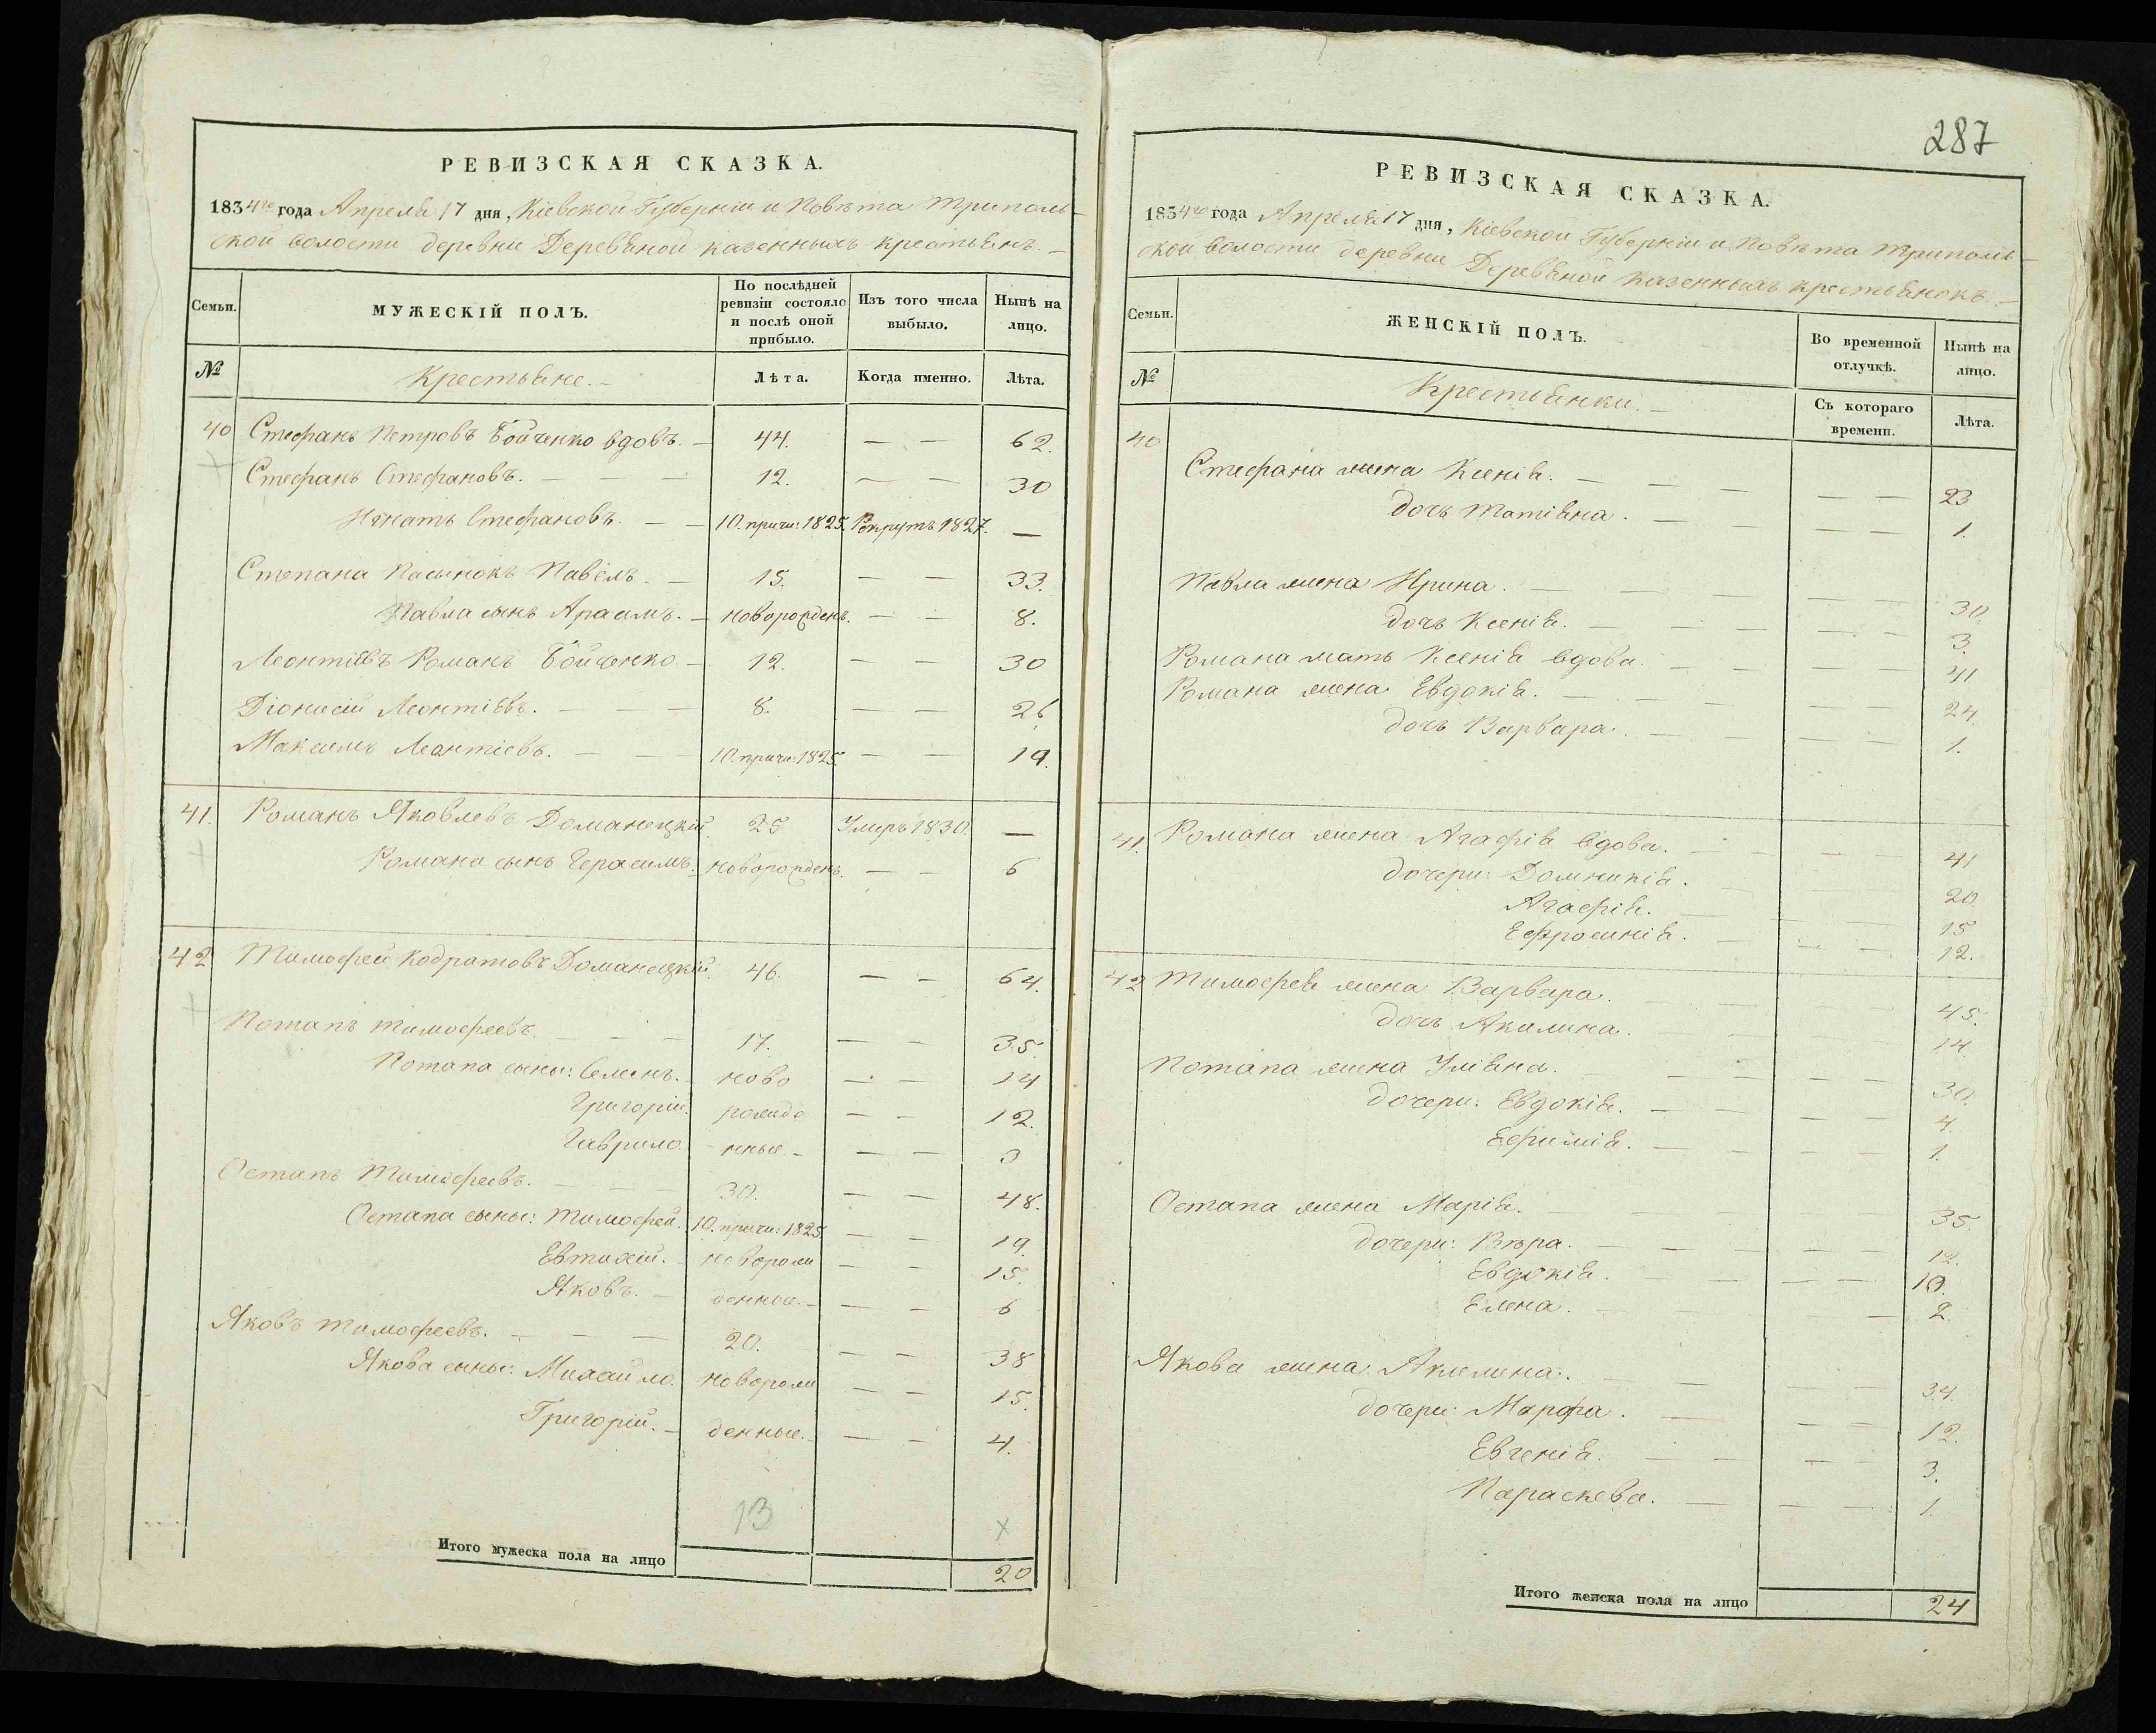 РЕВИЗСКАЯ СКАЗКА.
1834го года Апреля 17 дня, Кіевской Губерніи и Повѣта Триполь-
ской волости деревни Деревяной казенныхъ крестьянъ. —
Семьи.
МУЖЕСКІЙ ПОЛЪ.
По послѣдней ревизіи состояло и послѣ оной прибыло.
Изъ того числа выбыло.
Нынѣ на лицо.
№
Крестьяне. —
Лѣта.
Когда именно.
Лѣта.
40 Стефанъ Петровъ Бойченко вдовъ. — 44. — — 62.
Стефанъ Стефановъ. — — — 12. — — 30
Игнатъ Стефановъ. — — 10. причи: 1825. Рекрутъ 1827. —
Степана Пасынокъ Павелъ. — 15. — — 33.
Павла сынъ — новорожденъ. — — 8.
Леонтіевъ Романъ Бойченко. — 12. — — 30
Діонисій Леонтіевъ. — — — 8. — — 26
Максимъ Леонтіевъ. — — 10. причи: 1825. — — 19.
41. Романъ Яковлевъ Доманецкій. 25 Умеръ 1830. —
Романа сынъ Герасимъ. новорожденъ. — — 6
42 Тимофей Кодратовъ Доманецкій. 46. — — 64.
Потапъ Тимофеевъ. — — — 17. — — 35.
Потапа сыны: Семенъ. ново — — 14
Григорій. рожде — — 12.
Гаврило. нные. — — — 3
Остапъ Тимофеевъ. — — — 30. — — 48.
Остапа сыны: Тимофей. 10. причи: 1825. — — 19.
Евтихій. новорож — — 15.
Яковъ. — денные. — — — 6
Яковъ Тимофеевъ. — — — 20. — — 38
Якова сыны: Михайло. новорож — — 15.
Григорій. — денные. — — 4.
13 x
Итого мужеска пола на лицо 20
287
РЕВИЗСКАЯ СКАЗКА.
1834го года Апреля 17 дня, Кіевской Губерніи и Повѣта Триполь-
ской волости деревни Деревяной казенныхъ крестьянокъ. —
Семьи.
ЖЕНСКІЙ ПОЛЪ.
Во временной отлучкѣ.
Нынѣ на лицо.
№
Крестьянки. —
Съ котораго времени.
Лѣта.
40
Стефана жена Ксенія. — — — — — 23
дочь Татіяна. — — — — — 1.
Павла жена Ирина. — — — — — 30.
дочь Ксенія. — — — — — 3.
Романа мать Ксенія вдова. — — — — 41
Романа жена Евдокія. — — — — — 24.
дочь Варвара. — — — — — 1.
41. Романа жена Агафія вдова. — — — — 41
дочери: Домникія. — — — — 20.
Агафія. — — — — 15
Ефросинія. — — — — 12.
42 Тимофея жена Варвара. — — — — — 45.
дочь Акилина. — — — — — 14.
Потапа жена Уліяна. — — — — — 30.
дочери: Евдокія. — — — — — 4.
Ефимія. — — — — — 1.
Остапа жена Марія. — — — — — 35.
дочери: Вѣра. — — — — — 12.
Евдокія. — — — — — 10.
Елена. — — — — 2.
Якова жена Акилина. — — — — 34.
дочери: Марфа. — — — — 12.
Евгенія. — — — — 3.
Параскева. — — — — 1.
Итого женска пола на лицо 24